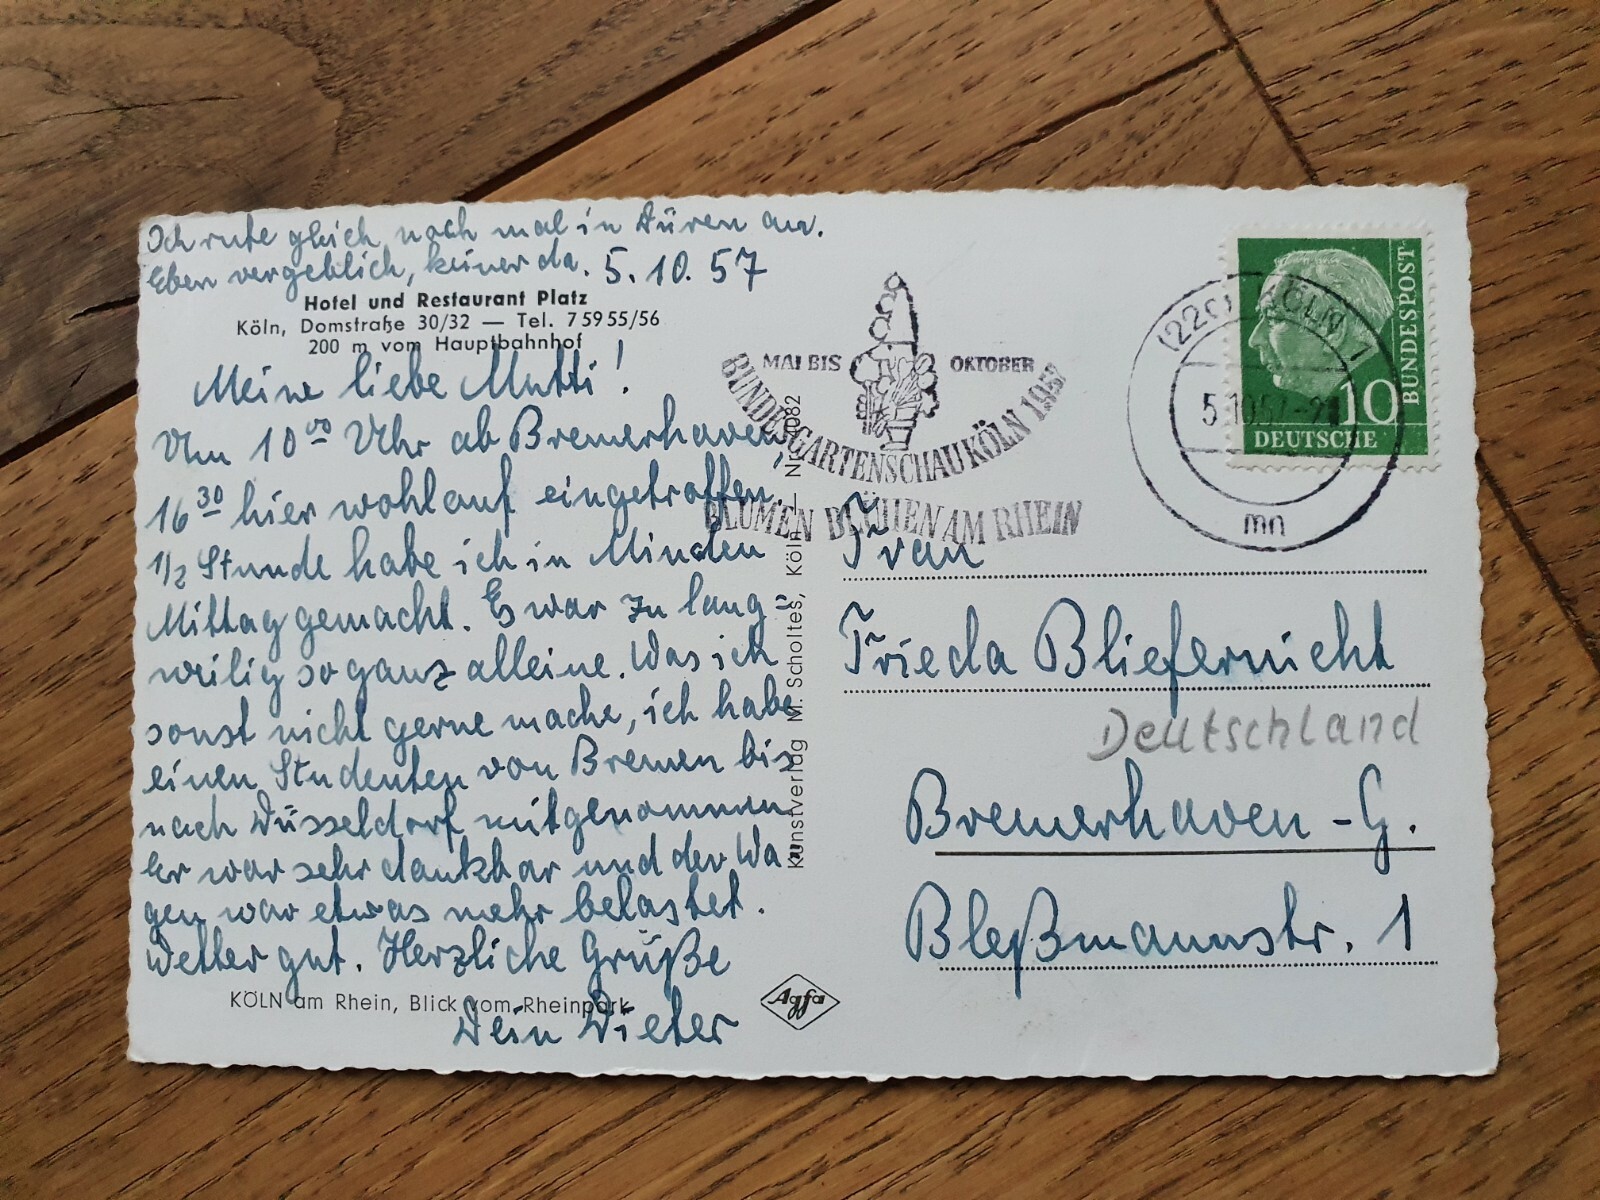 Ich rufe gleich noch mal in Düren an.
Eben vergeblich, keiner da. 5.10.57
Hotel und Restaurant Platz
Köln, Domstraße 30/32 — Tel. 7 59 55/56
200 m vom Hauptbahnhof
Meine liebe Mutti!
Um 10 00 Uhr ab Bremerhaven,
16 30 hier wohlauf eingetroffen.
1/2 Stunde habe ich in Minden
Mittag gemacht. Es war zu lang-
weilig so ganz alleine. Was ich
sonst nicht gerne mache, ich habe
einen Studenten von Bremen bis
nach Düsseldorf mitgenommen
Er war sehr dankbar und der Wa
gen war etwas mehr belastet.
Wetter gut. Herzliche Grüße
Dein Dieter
KÖLN am Rhein, Blick vom Rheinpark
Agfa
Kunstverlag M. Scholtes, Köln — Nr.
MAI BIS OKTOBER
BUNDESGARTENSCHAU KÖLN 1957
BLUMEN BLÜHEN AM RHEIN
(22c) KÖLN 1
5.10.57
mn
DEUTSCHE
BUNDESPOST
10
Frau
Frieda Bliefernicht
Deutschland
Bremerhaven-G.
Bleßmannstr. 1